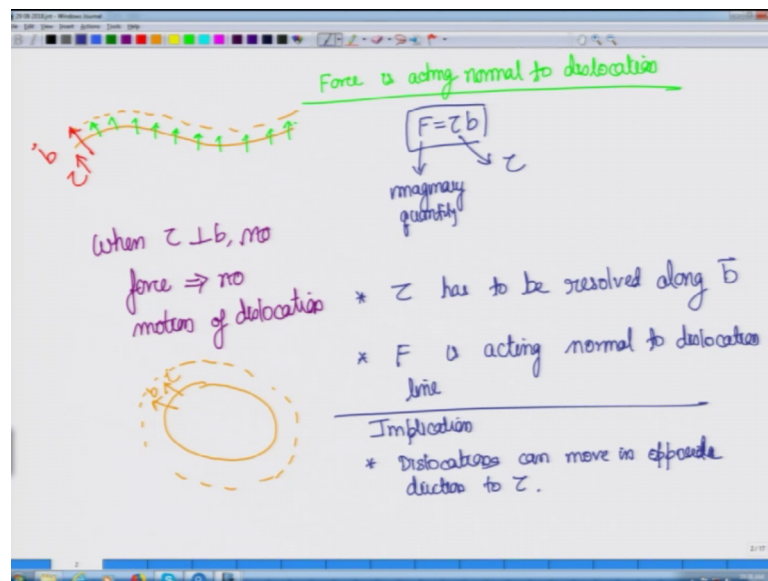 29 08 2018.jnt - Windows Journal
File Edit View Insert Actions Tools Help
Force is acting normal to dislocation
F=τb
τ
imaginary
quantity
b
τ
When τ⊥b, no
force ⇒ no
motion of dislocation
* τ has to be resolved along b̄
* F is acting normal to dislocation
line
b τ
Implication
* Dislocations can move in opposite
direction to τ.
2/17
2